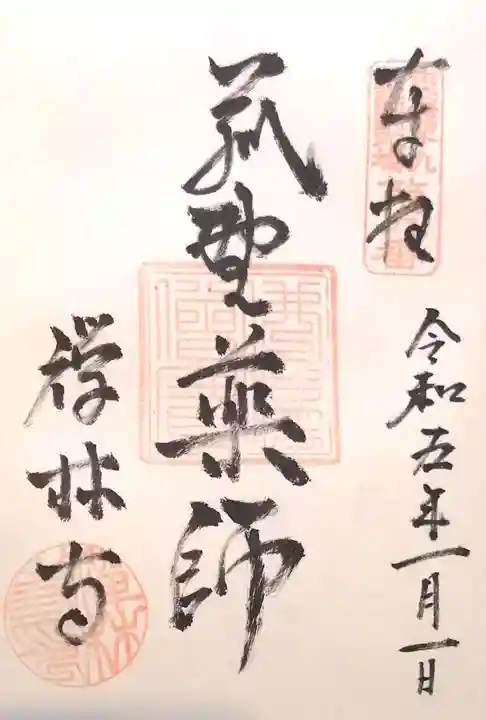 奉拝
令和五年一月一日
菰野薬師
禅林寺